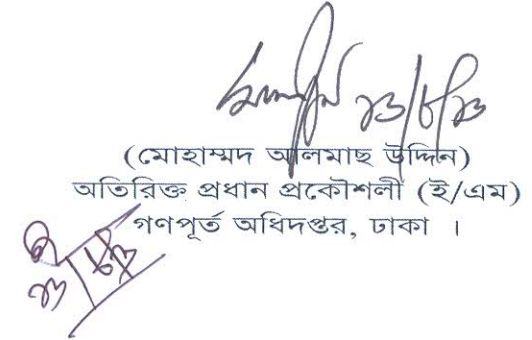 ২৩/৮/২৩
(মোহাম্মদ আলমাছ উদ্দিন)
অতিরিক্ত প্রধান প্রকৌশলী (ই/এম)
গণপূর্ত অধিদপ্তর, ঢাকা ।